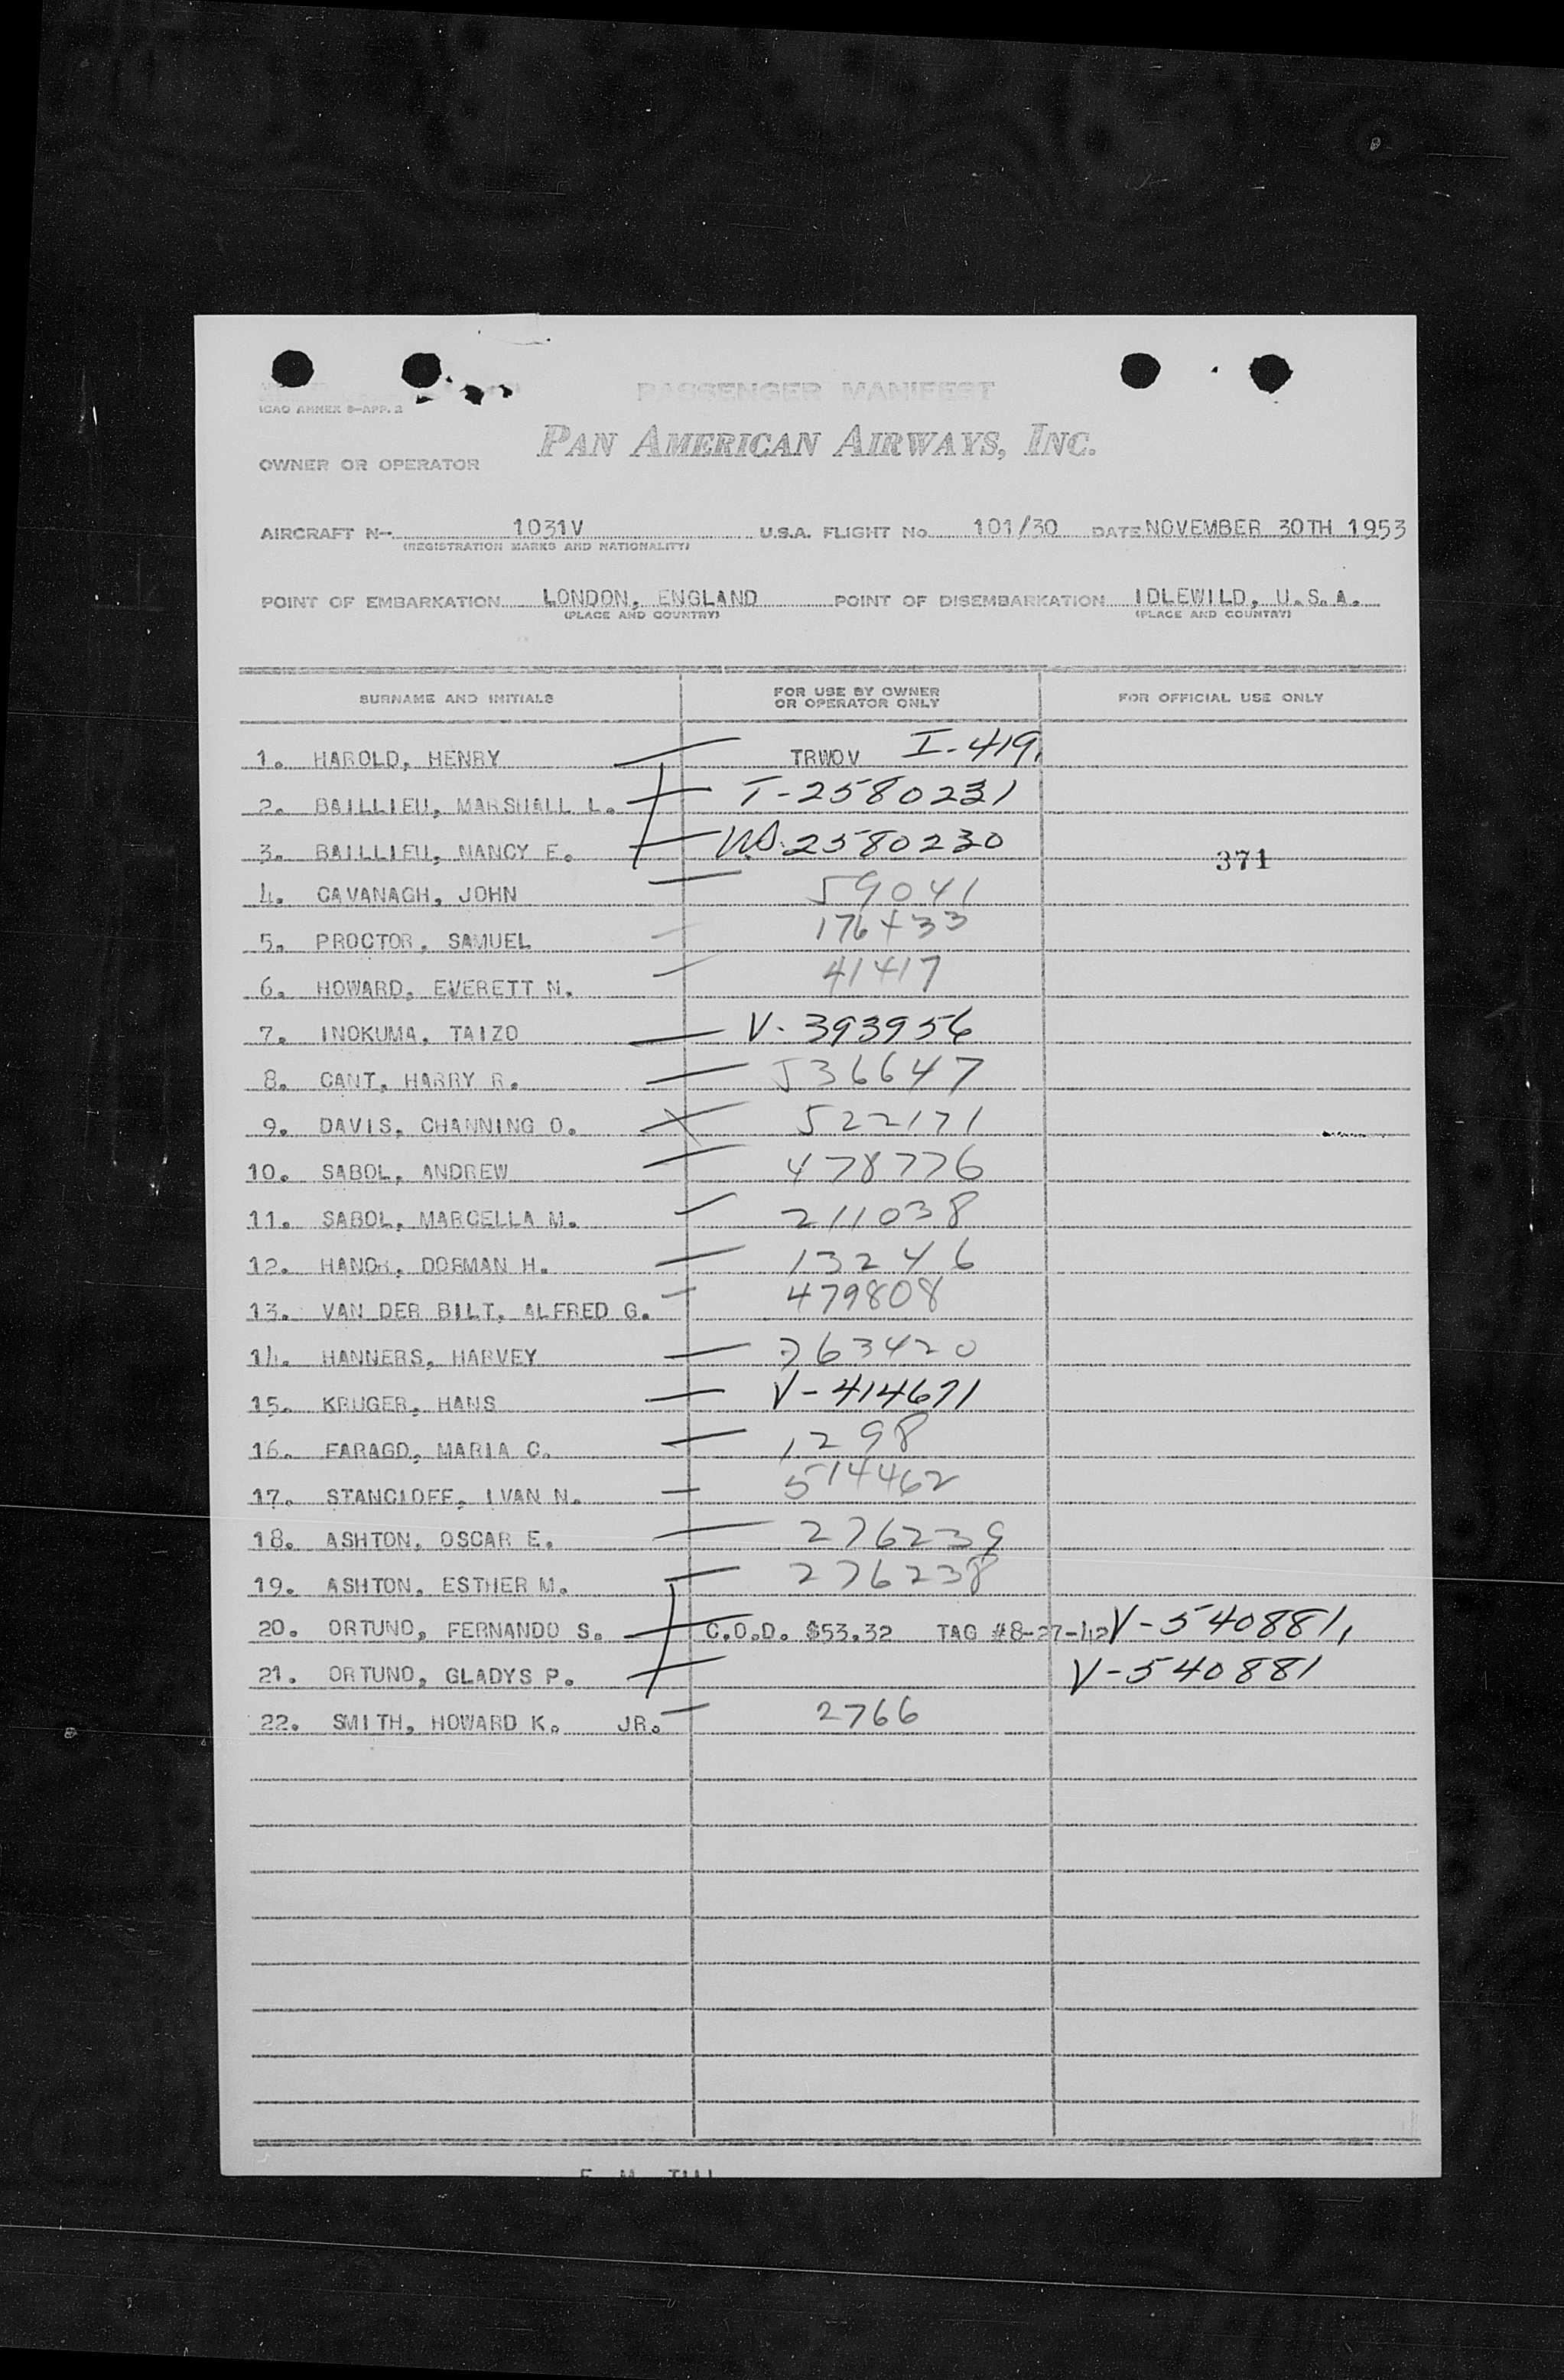 PASSENGER MANIFEST
ICAO ANNEX 9—APP. 2
PAN AMERICAN AIRWAYS, INC.
OWNER OR OPERATOR
AIRCRAFT N— 1031V U.S.A. FLIGHT No. 101/30 DATE NOVEMBER 30TH 1953
(REGISTRATION MARKS AND NATIONALITY)
POINT OF EMBARKATION LONDON, ENGLAND POINT OF DISEMBARKATION IDLEWILD, U.S.A.
(PLACE AND COUNTRY) (PLACE AND COUNTRY)
SURNAME AND INITIALS FOR USE BY OWNER OR OPERATOR ONLY FOR OFFICIAL USE ONLY
1. HAROLD, HENRY TRWOV I-419,
2. BAILLIEU, MARSHALL L. T-2580231
3. BAILLIEU, NANCY E. 2580230 371
4. CAVANAGH, JOHN 59041
5. PROCTOR, SAMUEL 176433
6. HOWARD, EVERETT N. 41417
7. INOKUMA, TAIZO V-393956
8. CANT, HARRY R. 536647
9. DAVIS, CHANNING O. 522171
10. SABOL, ANDREW 478776
11. SABOL, MARCELLA M. 211038
12. DORMAN H. 13246
13. VAN DER BILT, ALFRED G. 479808
14. HANNERS, HARVEY 263420
15. KRUGER, HANS V-414671
16. FARAGO, MARIA C. 1298
17. STANCIOFF, IVAN N. 514462
18. ASHTON, OSCAR E. 276239
19. ASHTON, ESTHER M. 276238
20. ORTUNO, FERNANDO S. C.O.D. $53.32 TAG #8-27-42 V-540881,
21. ORTUNO, GLADYS P. V-540881
22. SMITH, HOWARD K. JR. 2766